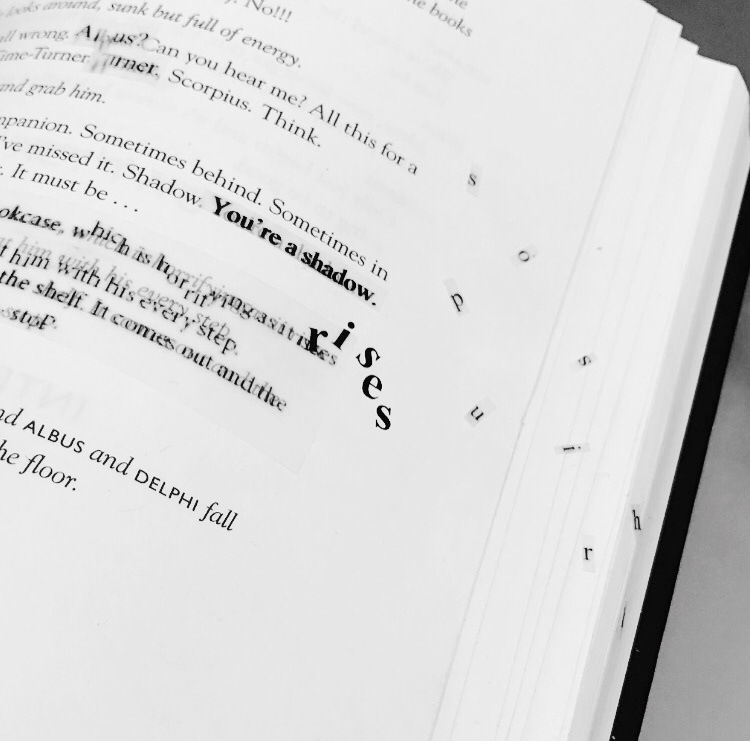 the books
No!!!
looks around, sunk but full of energy.
all wrong. Albus? Can you hear me? All this for a
Time-Turner Turner, Scorpius. Think.
and grab him.
Sometimes behind. Sometimes in
I've missed it. Shadow. You're a shadow.
It must be . . .
which is horrifying as it rises
rises
him with his every step.
the shelf. It comes out and the
stop.
ALBUS and DELPHI fall
floor.
s
o
p
s
u
i
h
r